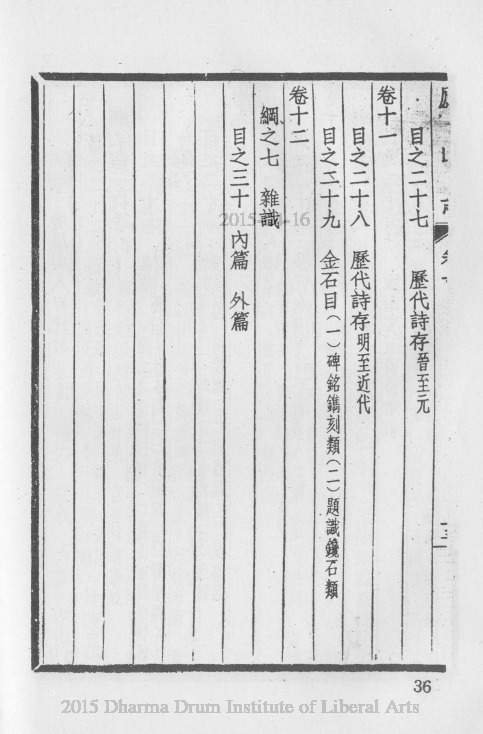 目之二十七　歷代詩存晉至元
卷十一
目之二十八　歷代詩存明至近代
目之二十九　金石目（一）碑銘鐫刻類（二）題識鐃石類
卷十二
綱之七　雜識
目之三十　內篇　外篇
36
2015 Dharma Drum Institute of Liberal Arts